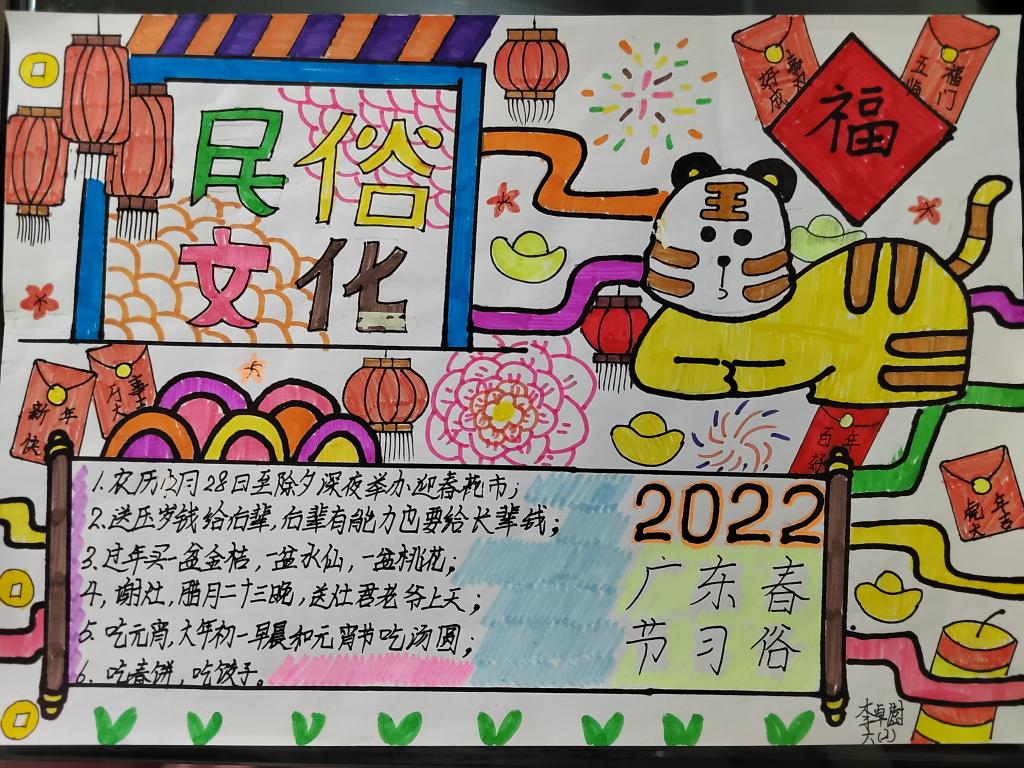 民俗
文化
福
王
新年
快
万事
大吉
百年
好
五福
临门
虎年
大吉
1.农历12月28日至除夕深夜举办迎春花市;
2.送压岁钱给后辈,后辈有能力也要给长辈钱;
3.过年买一盆金桔,一盆水仙,一盆桃花;
4,谢灶,腊月二十三晚,送灶君老爷上天;
5.吃元宵,大年初一早晨和元宵节吃汤圆;
6.吃春饼,吃饺子。
2022
广东春
节习俗
六(2)